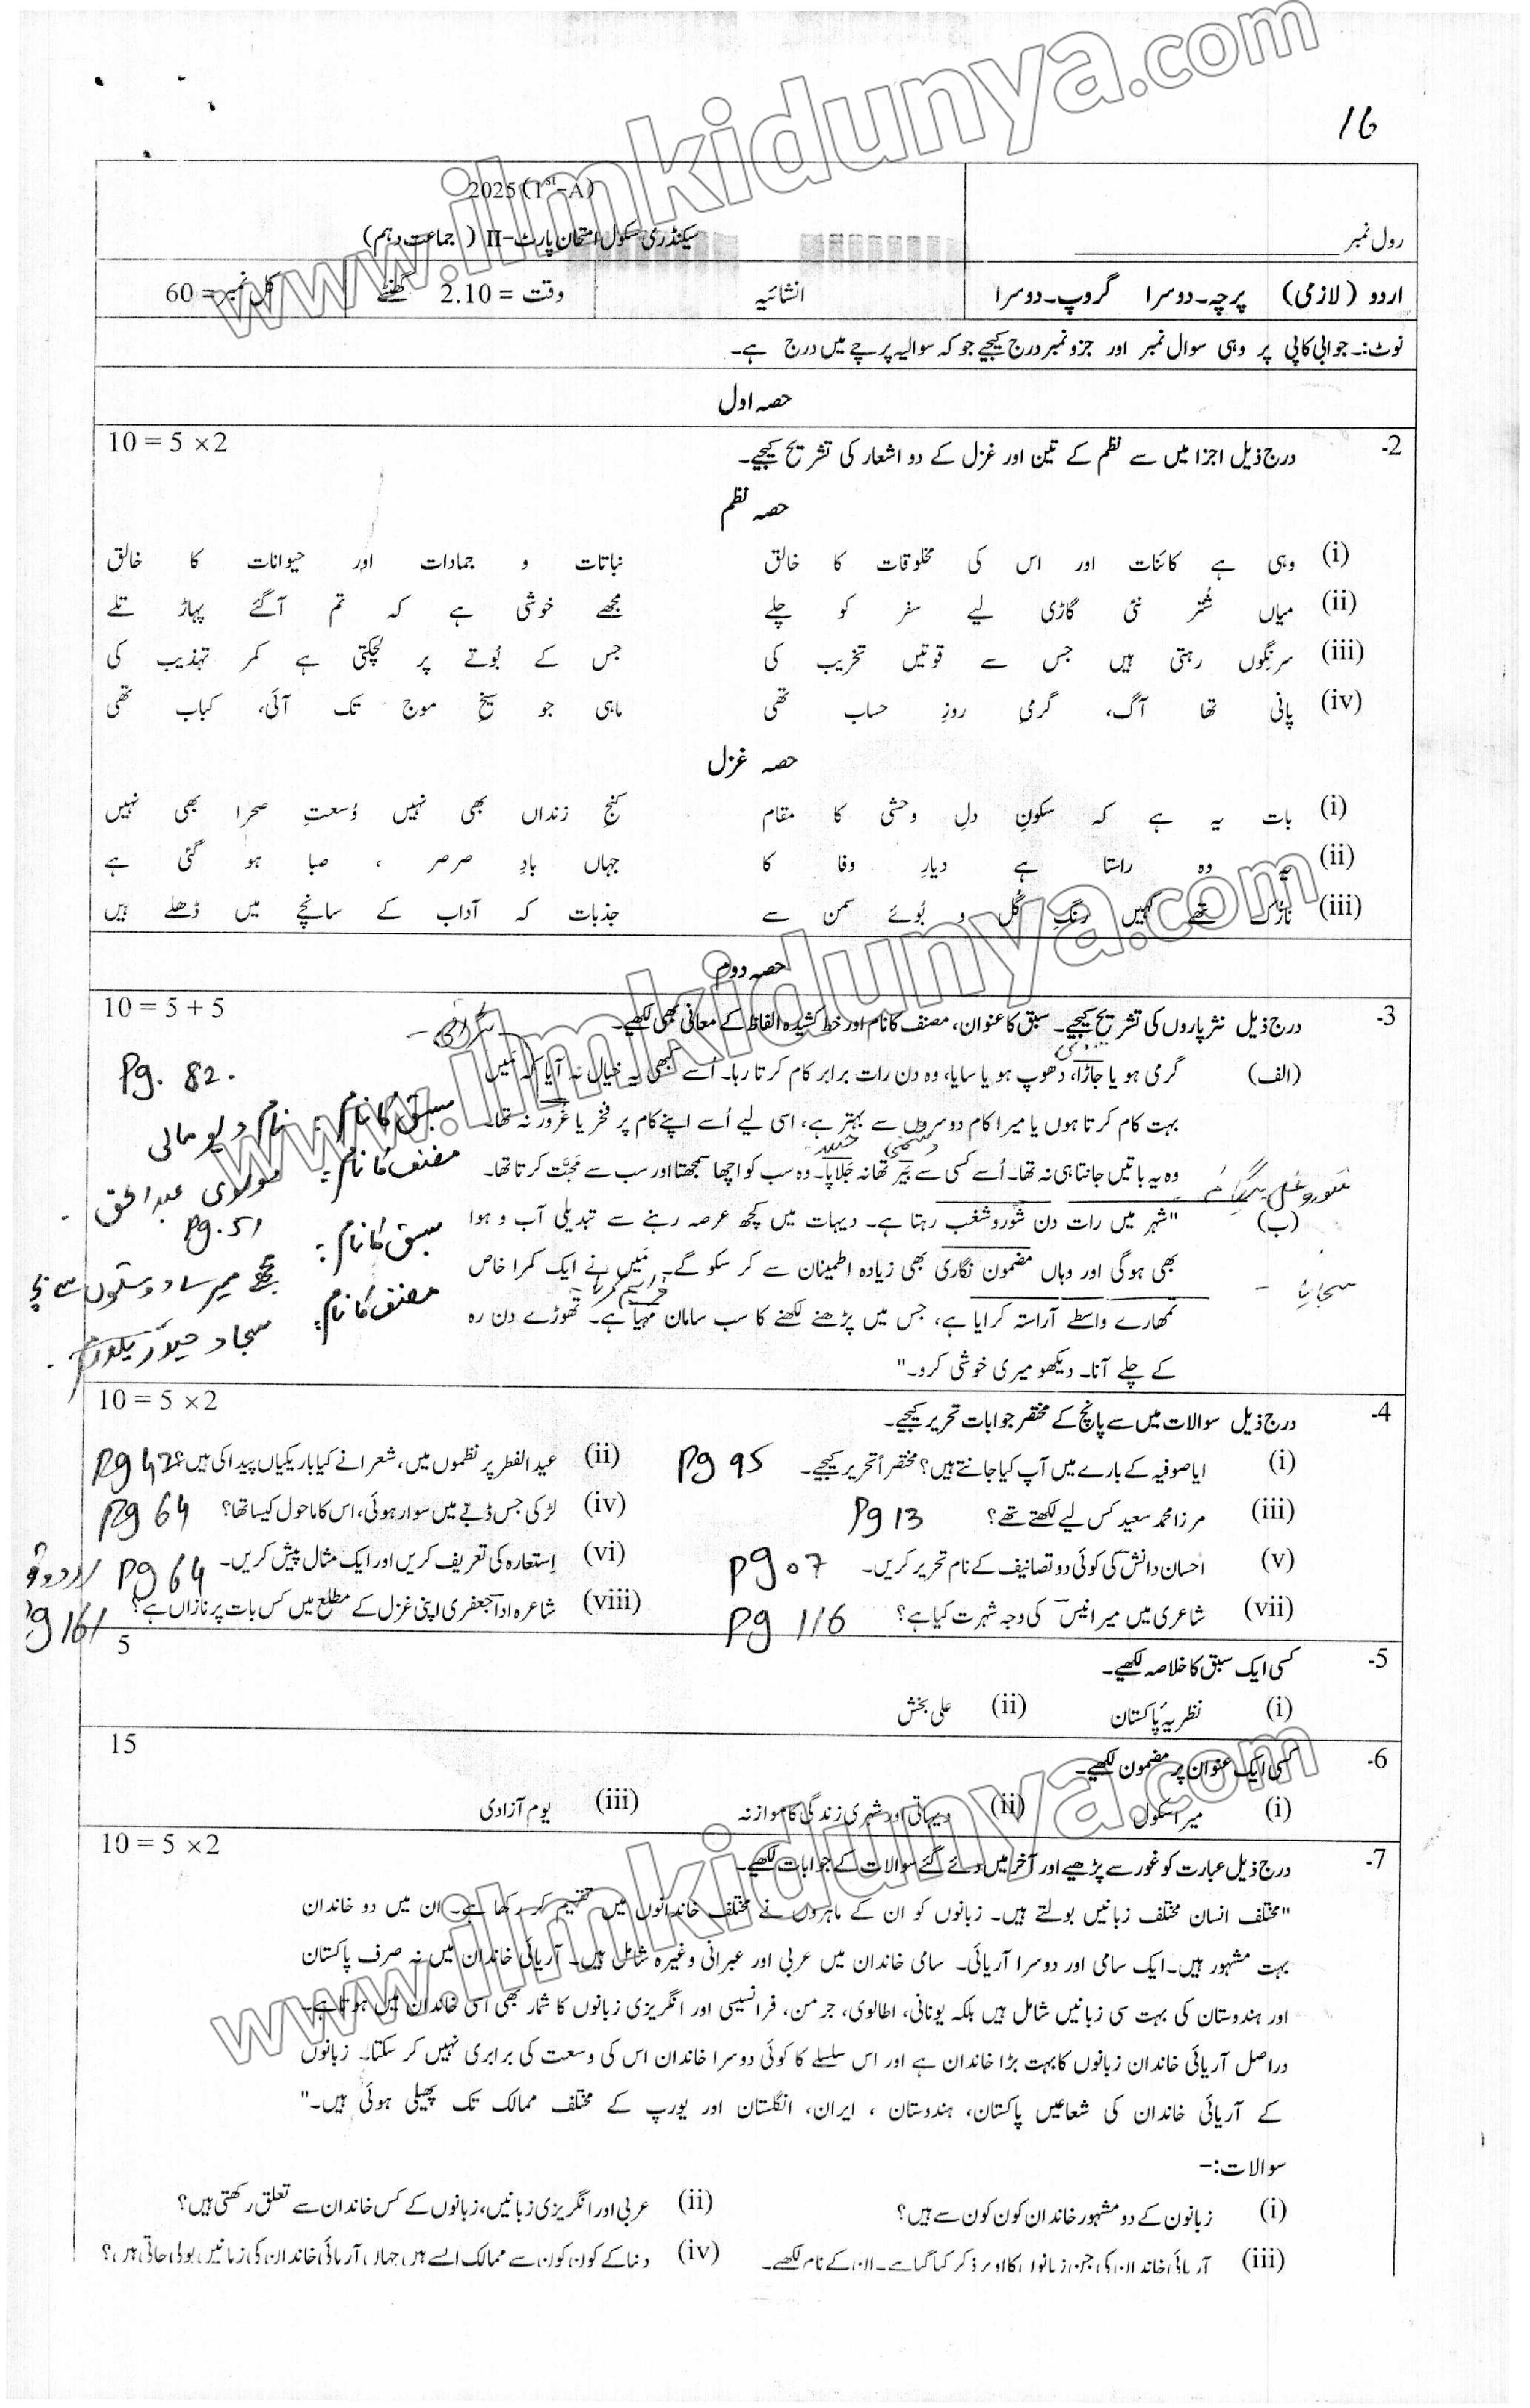 www.ilmkidunya.com
16
2025 (1st-A)
سیکنڈری سکول امتحان پارٹ-II ( جماعت دہم)
رول نمبر
اردو (لازمی) پرچہ۔دوسرا گروپ۔دوسرا انشائیہ وقت = 2.10 گھنٹے کل نمبر = 60
نوٹ:۔ جوابی کاپی پر وہی سوال نمبر اور جزو نمبر درج کیجیے جو کہ سوالیہ پرچے میں درج ہے۔
حصہ اول
2- درج ذیل اجزا میں سے نظم کے تین اور غزل کے دو اشعار کی تشریح کیجیے۔ 10 = 5 ×2
حصہ نظم
(i) وہی ہے کائنات اور اس کی مخلوقات کا خالق نباتات و جمادات اور حیوانات کا خالق
(ii) میاں شُتر نئی گاڑی لیے سفر کو چلے مجھے خوشی ہے کہ تم آگئے پہاڑ تلے
(iii) سرنگوں رہتی ہیں جس سے قوتیں تخریب کی جس کے بُوتے پر لچکتی ہے کمر تہذیب کی
(iv) پانی تھا آگ، گرمیِ روزِ حساب تھی ماہی جو سیخِ موج تک آئی، کباب تھی
حصہ غزل
(i) بات یہ ہے کہ سکونِ دلِ وحشی کا مقام کنجِ زنداں بھی نہیں وُسعتِ صحرا بھی نہیں
(ii) یہ وہ راستا ہے دیارِ وفا کا جہاں بادِ صرصر ، صبا ہو گئی ہے
(iii) نازک تھے کہیں رنگِ گُل و بُوئے سمن سے جذبات کہ آداب کے سانچے میں ڈھلے ہیں
حصہ دوم
3- درج ذیل نثر پاروں کی تشریح کیجیے۔ سبق کا عنوان، مصنف کا نام اور خط کشیدہ الفاظ کے معانی بھی لکھیے۔ 10 = 5 + 5
(الف) گرمی ہو یا جاڑا، دھوپ ہو یا سایا، وہ دن رات برابر کام کرتا رہا۔ اُسے کبھی یہ خیال نہ آیا کہ مَیں Pg. 82.
بہت کام کرتا ہوں یا میرا کام دوسروں سے بہتر ہے، اسی لیے اُسے اپنے کام پر فخر یا غرور نہ تھا۔ سبق کا نام: نام دیو مالی
وہ یہ باتیں جانتا ہی نہ تھا۔ اُسے کسی سے بَیر تھا نہ جلاپا۔ وہ سب کو اچھا سمجھتا اور سب سے محبّت کرتا تھا۔ مصنف کا نام: مولوی عبدالحق
دشمنی حسد
(ب) "شہر میں رات دن شوروشغب رہتا ہے۔ دیہات میں کچھ عرصہ رہنے سے تبدیلیِ آب و ہوا Pg. 51
بھی ہوگی اور وہاں مضمون نگاری بھی زیادہ اطمینان سے کر سکو گے۔ مَیں نے ایک کمرا خاص سبق کا نام: مجھے میرے دوستوں سے بچاؤ
تمھارے واسطے آراستہ کرایا ہے، جس میں پڑھنے لکھنے کا سب سامان مہیا ہے۔ تھوڑے دن رہ مصنف کا نام: سجاد حیدر یلدرم
سجانا
کے چلے آنا۔ دیکھو میری خوشی کرو۔"
4- درج ذیل سوالات میں سے پانچ کے مختصر جوابات تحریر کیجیے۔ 10 = 5 ×2
(i) ایا صوفیہ کے بارے میں آپ کیا جانتے ہیں؟ مختصراً تحریر کیجیے۔ Pg 95 (ii) عید الفطر پر نظموں میں، شعرا نے کیا باریکیاں پیدا کی ہیں؟ Pg 42
(iii) مرزا محمد سعید کس لیے لکھتے تھے؟ Pg 13 (iv) لڑکی جس ڈبے میں سوار ہوئی، اس کا ماحول کیسا تھا؟ Pg 64
(v) احسان دانش کی کوئی دو تصانیف کے نام تحریر کریں۔ Pg 07 (vi) اِستعارہ کی تعریف کریں اور ایک مثال پیش کریں۔ Pg 64
(vii) شاعری میں میر انیس کی وجہ شہرت کیا ہے؟ Pg 116 (viii) شاعرہ ادا جعفری اپنی غزل کے مطلع میں کس بات پر نازاں ہے؟ Pg 161
5- کسی ایک سبق کا خلاصہ لکھیے۔ 5
(i) نظریۂ پاکستان (ii) علی بخش
6- کسی ایک عنوان پر مضمون لکھیے۔ 15
(i) میرا سکول (ii) دیہاتی اور شہری زندگی کا موازنہ (iii) یوم آزادی
7- درج ذیل عبارت کو غور سے پڑھیے اور آخر میں دئے گئے سوالات کے جوابات لکھیے۔ 10 = 5 ×2
"مختلف انسان مختلف زبانیں بولتے ہیں۔ زبانوں کو ان کے ماہروں نے مختلف خاندانوں میں تقسیم کر رکھا ہے۔ ان میں دو خاندان
بہت مشہور ہیں۔ ایک سامی اور دوسرا آریائی۔ سامی خاندان میں عربی اور عبرانی وغیرہ شامل ہیں۔ آریائی خاندان میں نہ صرف پاکستان
اور ہندوستان کی بہت سی زبانیں شامل ہیں بلکہ یونانی، اطالوی، جرمن، فرانسیسی اور انگریزی زبانوں کا شمار بھی اسی خاندان میں ہوتا ہے۔
دراصل آریائی خاندان زبانوں کا بہت بڑا خاندان ہے اور اس سلسلے کا کوئی دوسرا خاندان اس کی وسعت کی برابری نہیں کر سکتا۔ زبانوں
کے آریائی خاندان کی شعاعیں پاکستان، ہندوستان ، ایران، انگلستان اور یورپ کے مختلف ممالک تک پھیلی ہوئی ہیں۔"
سوالات:-
(i) زبانوں کے دو مشہور خاندان کون کون سے ہیں؟ (ii) عربی اور انگریزی زبانیں، زبانوں کے کس خاندان سے تعلق رکھتی ہیں؟
(iii) آریائی خاندان کی جن زبانوں کا اوپر ذکر کیا گیا ہے۔ ان کے نام لکھیے۔ (iv) دنیا کے کون کون سے ممالک ایسے ہیں جہاں آریائی خاندان کی زبانیں بولی جاتی ہیں؟